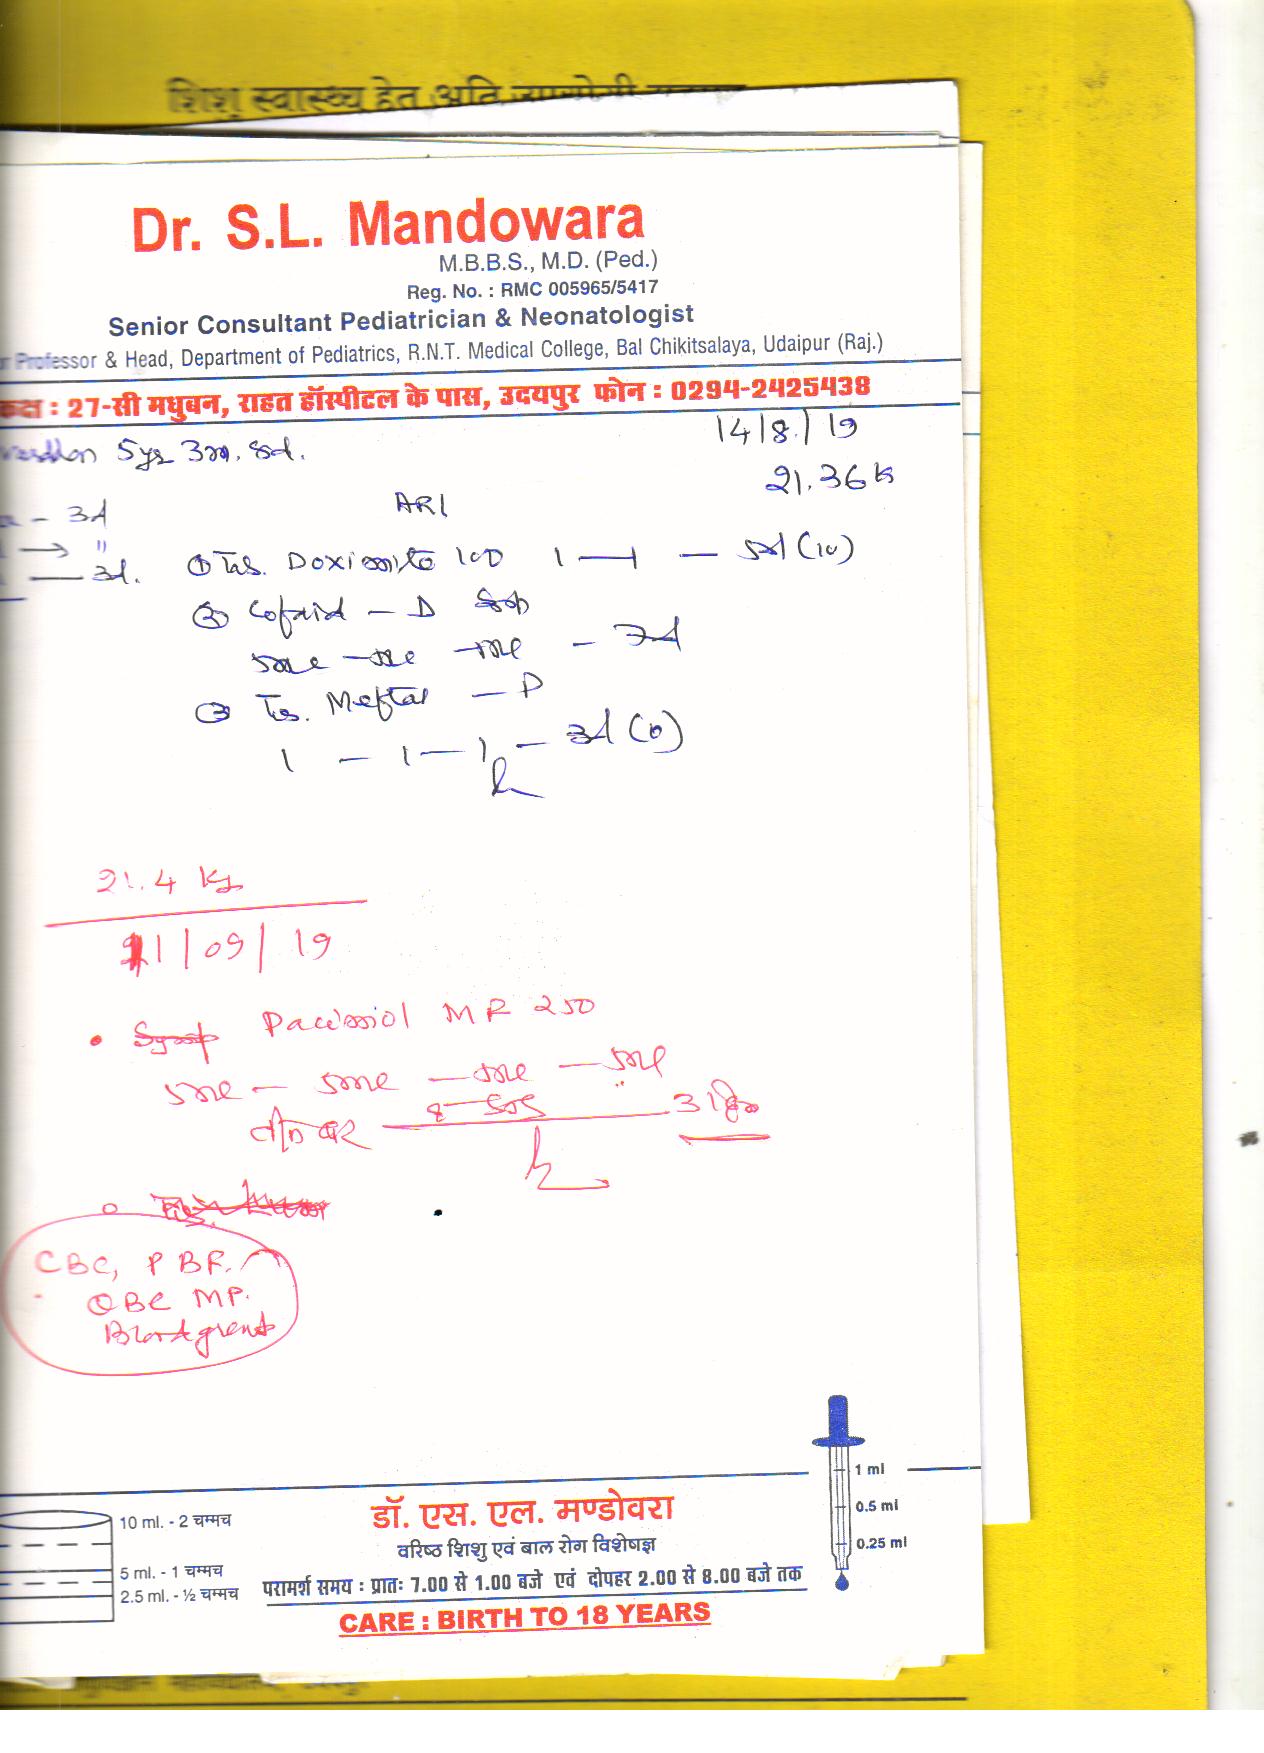 शिशु स्वास्थ्य हेतु अति
Dr. S.L. Mandowara
M.B.B.S., M.D. (Ped.)
Reg. No. : RMC 005965/5417
Senior Consultant Pediatrician & Neonatologist
Professor & Head, Department of Pediatrics, R.N.T. Medical College, Bal Chikitsalaya, Udaipur (Raj.)
27-सी मधुबन, राहत हॉस्पीटल के पास, उदयपुर फोन : 0294-2425438
14/8/19
5yr 3m.
21.36 k
ARI
- 3d
→ "
— 3d.
① Tab. 100 1 — 1 — 5d (10)
② - D
5ml - 5ml - 5ml - 3d
③ Tab. Meftal - P
1 - 1 - 1 - 3d
21.4 Kg
11/09/19
• Pacimol MF 250
5ml - 5ml - 5ml - 5ml
तीन बार 8 - SOS 3 दिन
CBC, PBF.
QBC MP.
10 ml. - 2 चम्मच
5 ml. - 1 चम्मच
2.5 ml. - ½ चम्मच
डॉ. एस. एल. मण्डोवरा
वरिष्ठ शिशु एवं बाल रोग विशेषज्ञ
परामर्श समय : प्रातः 7.00 से 1.00 बजे एवं दोपहर 2.00 से 8.00 बजे तक
CARE : BIRTH TO 18 YEARS
1 ml
0.5 ml
0.25 ml